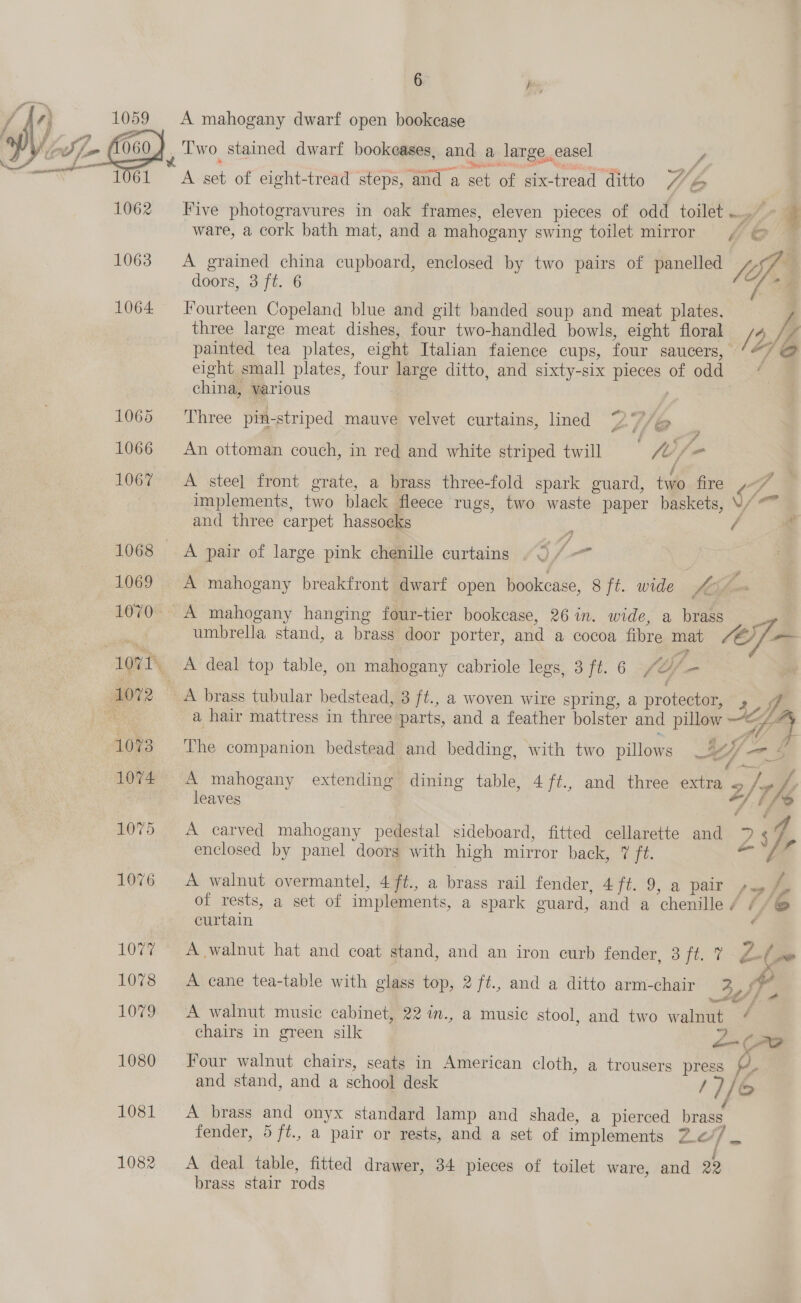 6
1059 A mahogany dwarf open bookcase
1060 Two stained dwarf bookcases, and a large easel
1061 A set of eight-tread steps, and a set of six-tread ditto 7/6
1062 Five photogravures in oak frames, eleven pieces of odd toilet
ware, a cork bath mat, and a mahogany swing toilet mirror
1063 A grained china cupboard, enclosed by two pairs of panelled
doors, 3 ft. 6
1064 Fourteen Copeland blue and gilt banded soup and meat plates,
three large meat dishes, four two-handled bowls, eight floral
painted tea plates, eight Italian faience cups, four saucers,
eight small plates, four large ditto, and sixty-six pieces of odd
china, various
1065 Three pin-striped mauve velvet curtains, lined 27/6
1066 An ottoman couch, in red and white striped twill
1067 A steel front grate, a brass three-fold spark guard, two fire
implements, two black fleece rugs, two waste paper baskets,
and three carpet hassocks
1068 A pair of large pink chenille curtains
1069 A mahogany breakfront dwarf open bookcase, 8 ft. wide
1070 A mahogany hanging four-tier bookcase, 26 in. wide, a brass
umbrella stand, a brass door porter, and a cocoa fibre mat
1071 A deal top table, on mahogany cabriole legs, 3 ft. 6
1072 A brass tubular bedstead, 3 ft., a woven wire spring, a protector,
a hair mattress in three parts, and a feather bolster and pillow
1073 The companion bedstead and bedding, with two pillows
1074 A mahogany extending dining table, 4 ft., and three extra
leaves
1075 A carved mahogany pedestal sideboard, fitted cellarette and
enclosed by panel doors with high mirror back, 7 ft.
1076 A walnut overmantel, 4 ft., a brass rail fender, 4 ft. 9, a pair
of rests, a set of implements, a spark guard, and a chenille
curtain
1077 A walnut hat and coat stand, and an iron curb fender, 3 ft. 7
1078 A cane tea-table with glass top, 2 ft., and a ditto arm-chair
1079 A walnut music cabinet, 22 in., a music stool, and two walnut
chairs in green silk
1080 Four walnut chairs, seats in American cloth, a trousers press
and stand, and a school desk 17/6
1081 A brass and onyx standard lamp and shade, a pierced brass
fender, 5 ft., a pair or rests, and a set of implements
1082 A deal table, fitted drawer, 34 pieces of toilet ware, and 22
brass stair rods